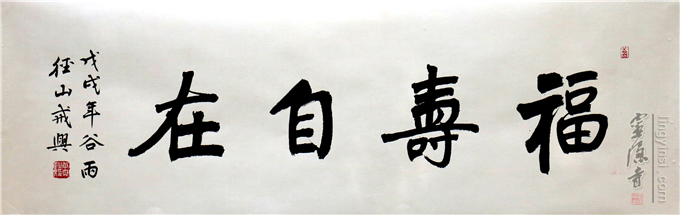 福壽自在
戊戌年谷雨
徑山戒興
靈隱寺
lingyinsi.com